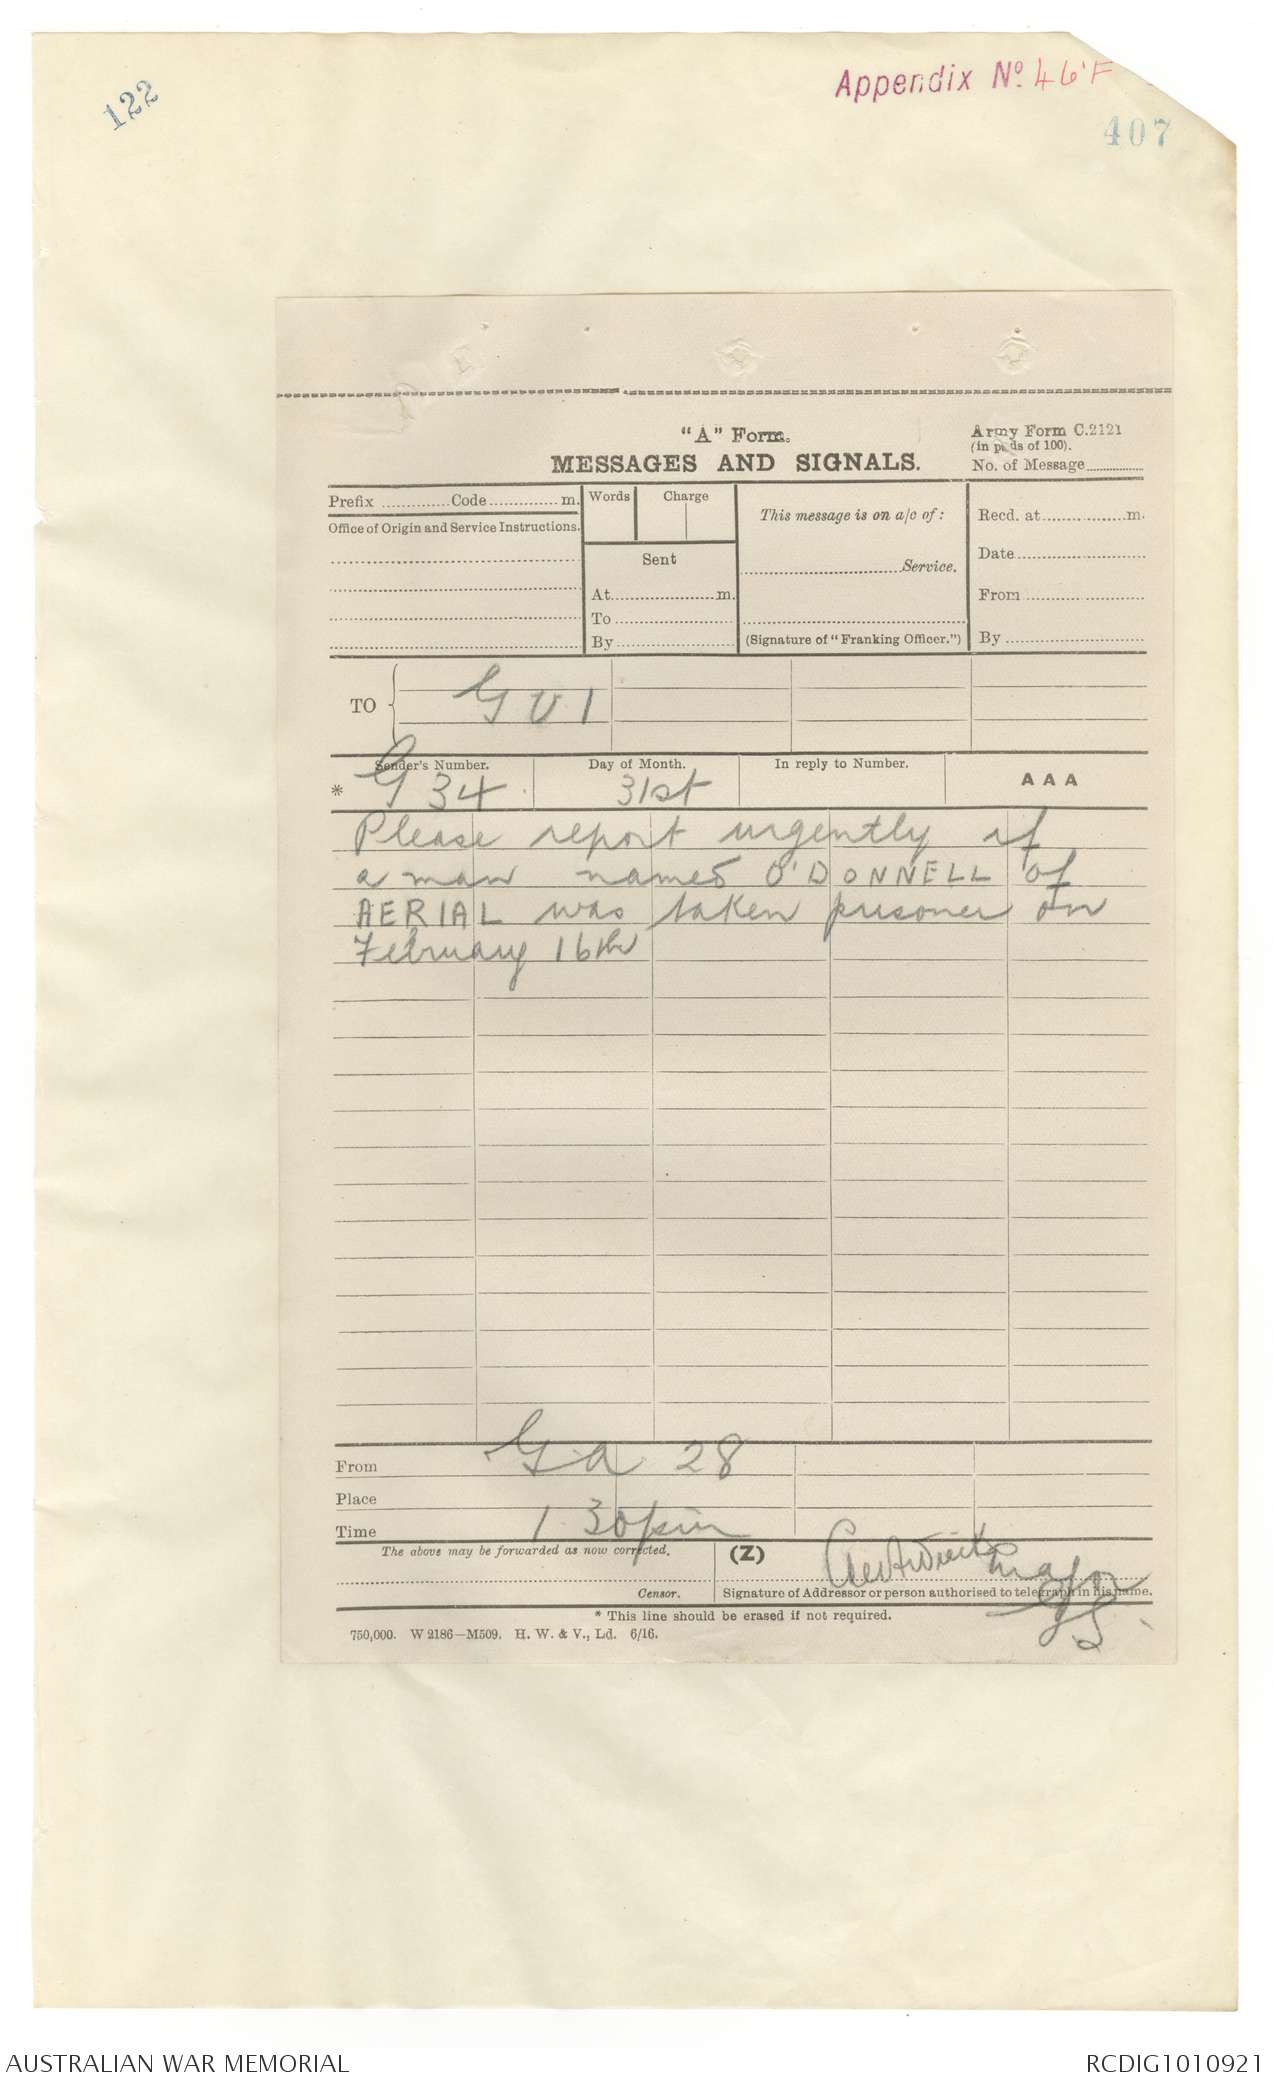 122
Appendix No. 46'F
407
"A" Form.
Army Form C.2121
(in pads of 100).
MESSAGES AND SIGNALS.
No. of Message
Prefix Code m.
Words Charge
This message is on a/c of:
Recd. at m.
Office of Origin and Service Instructions.
Sent
Date
Service.
At m.
From
To
By
(Signature of "Franking Officer.")
By
TO
G U 1
Sender's Number.
Day of Month.
In reply to Number.
A A A
* G 34
31st
Please report urgently if
a man named O'DONNELL of
AERIAL was taken prisoner on
February 16th
From G.a 28
Place
Time 1.30 pm
The above may be forwarded as now corrected.
(Z)
Major
GS
Censor.
Signature of Addressor or person authorised to telegraph in his name.
* This line should be erased if not required.
750,000. W 2186—M509. H. W. & V., Ld. 6/16.
AUSTRALIAN WAR MEMORIAL
RCDIG1010921